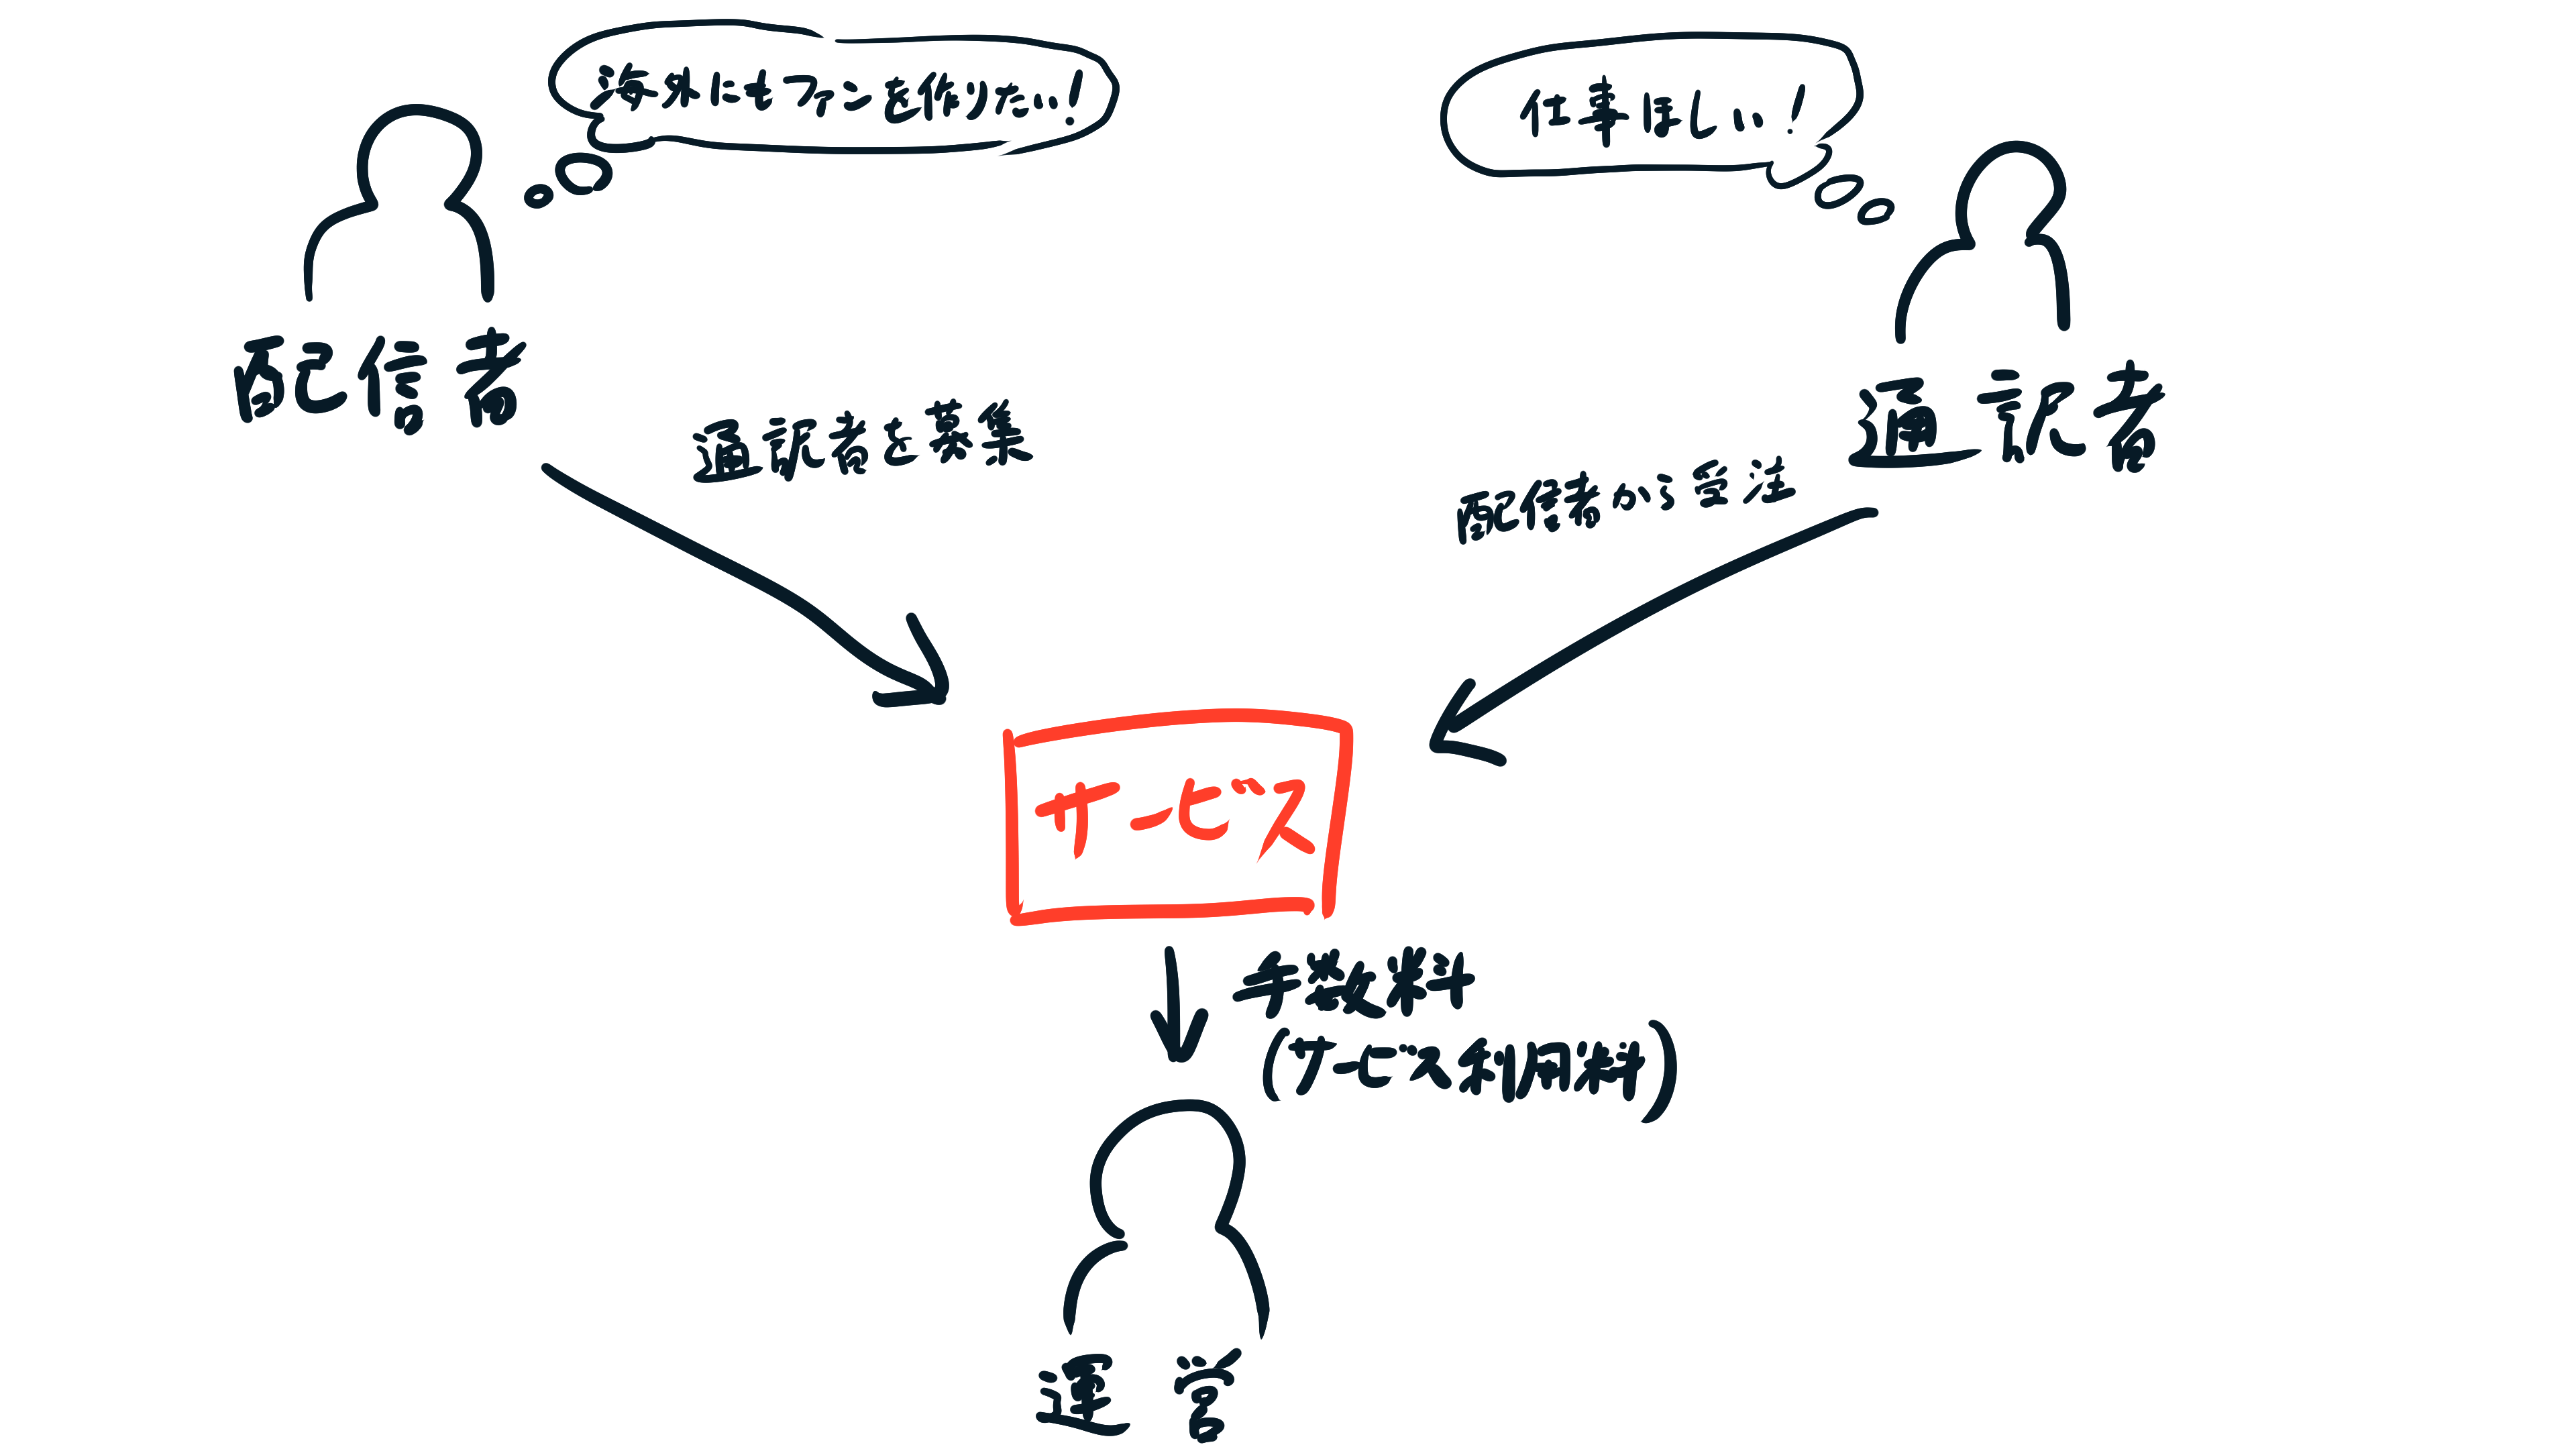 海外にもファンを作りたい!
仕事ほしい!
配信者
通訳者
通訳者を募集
配信者から受注
サービス
手数料
(サービス利用料)
運営